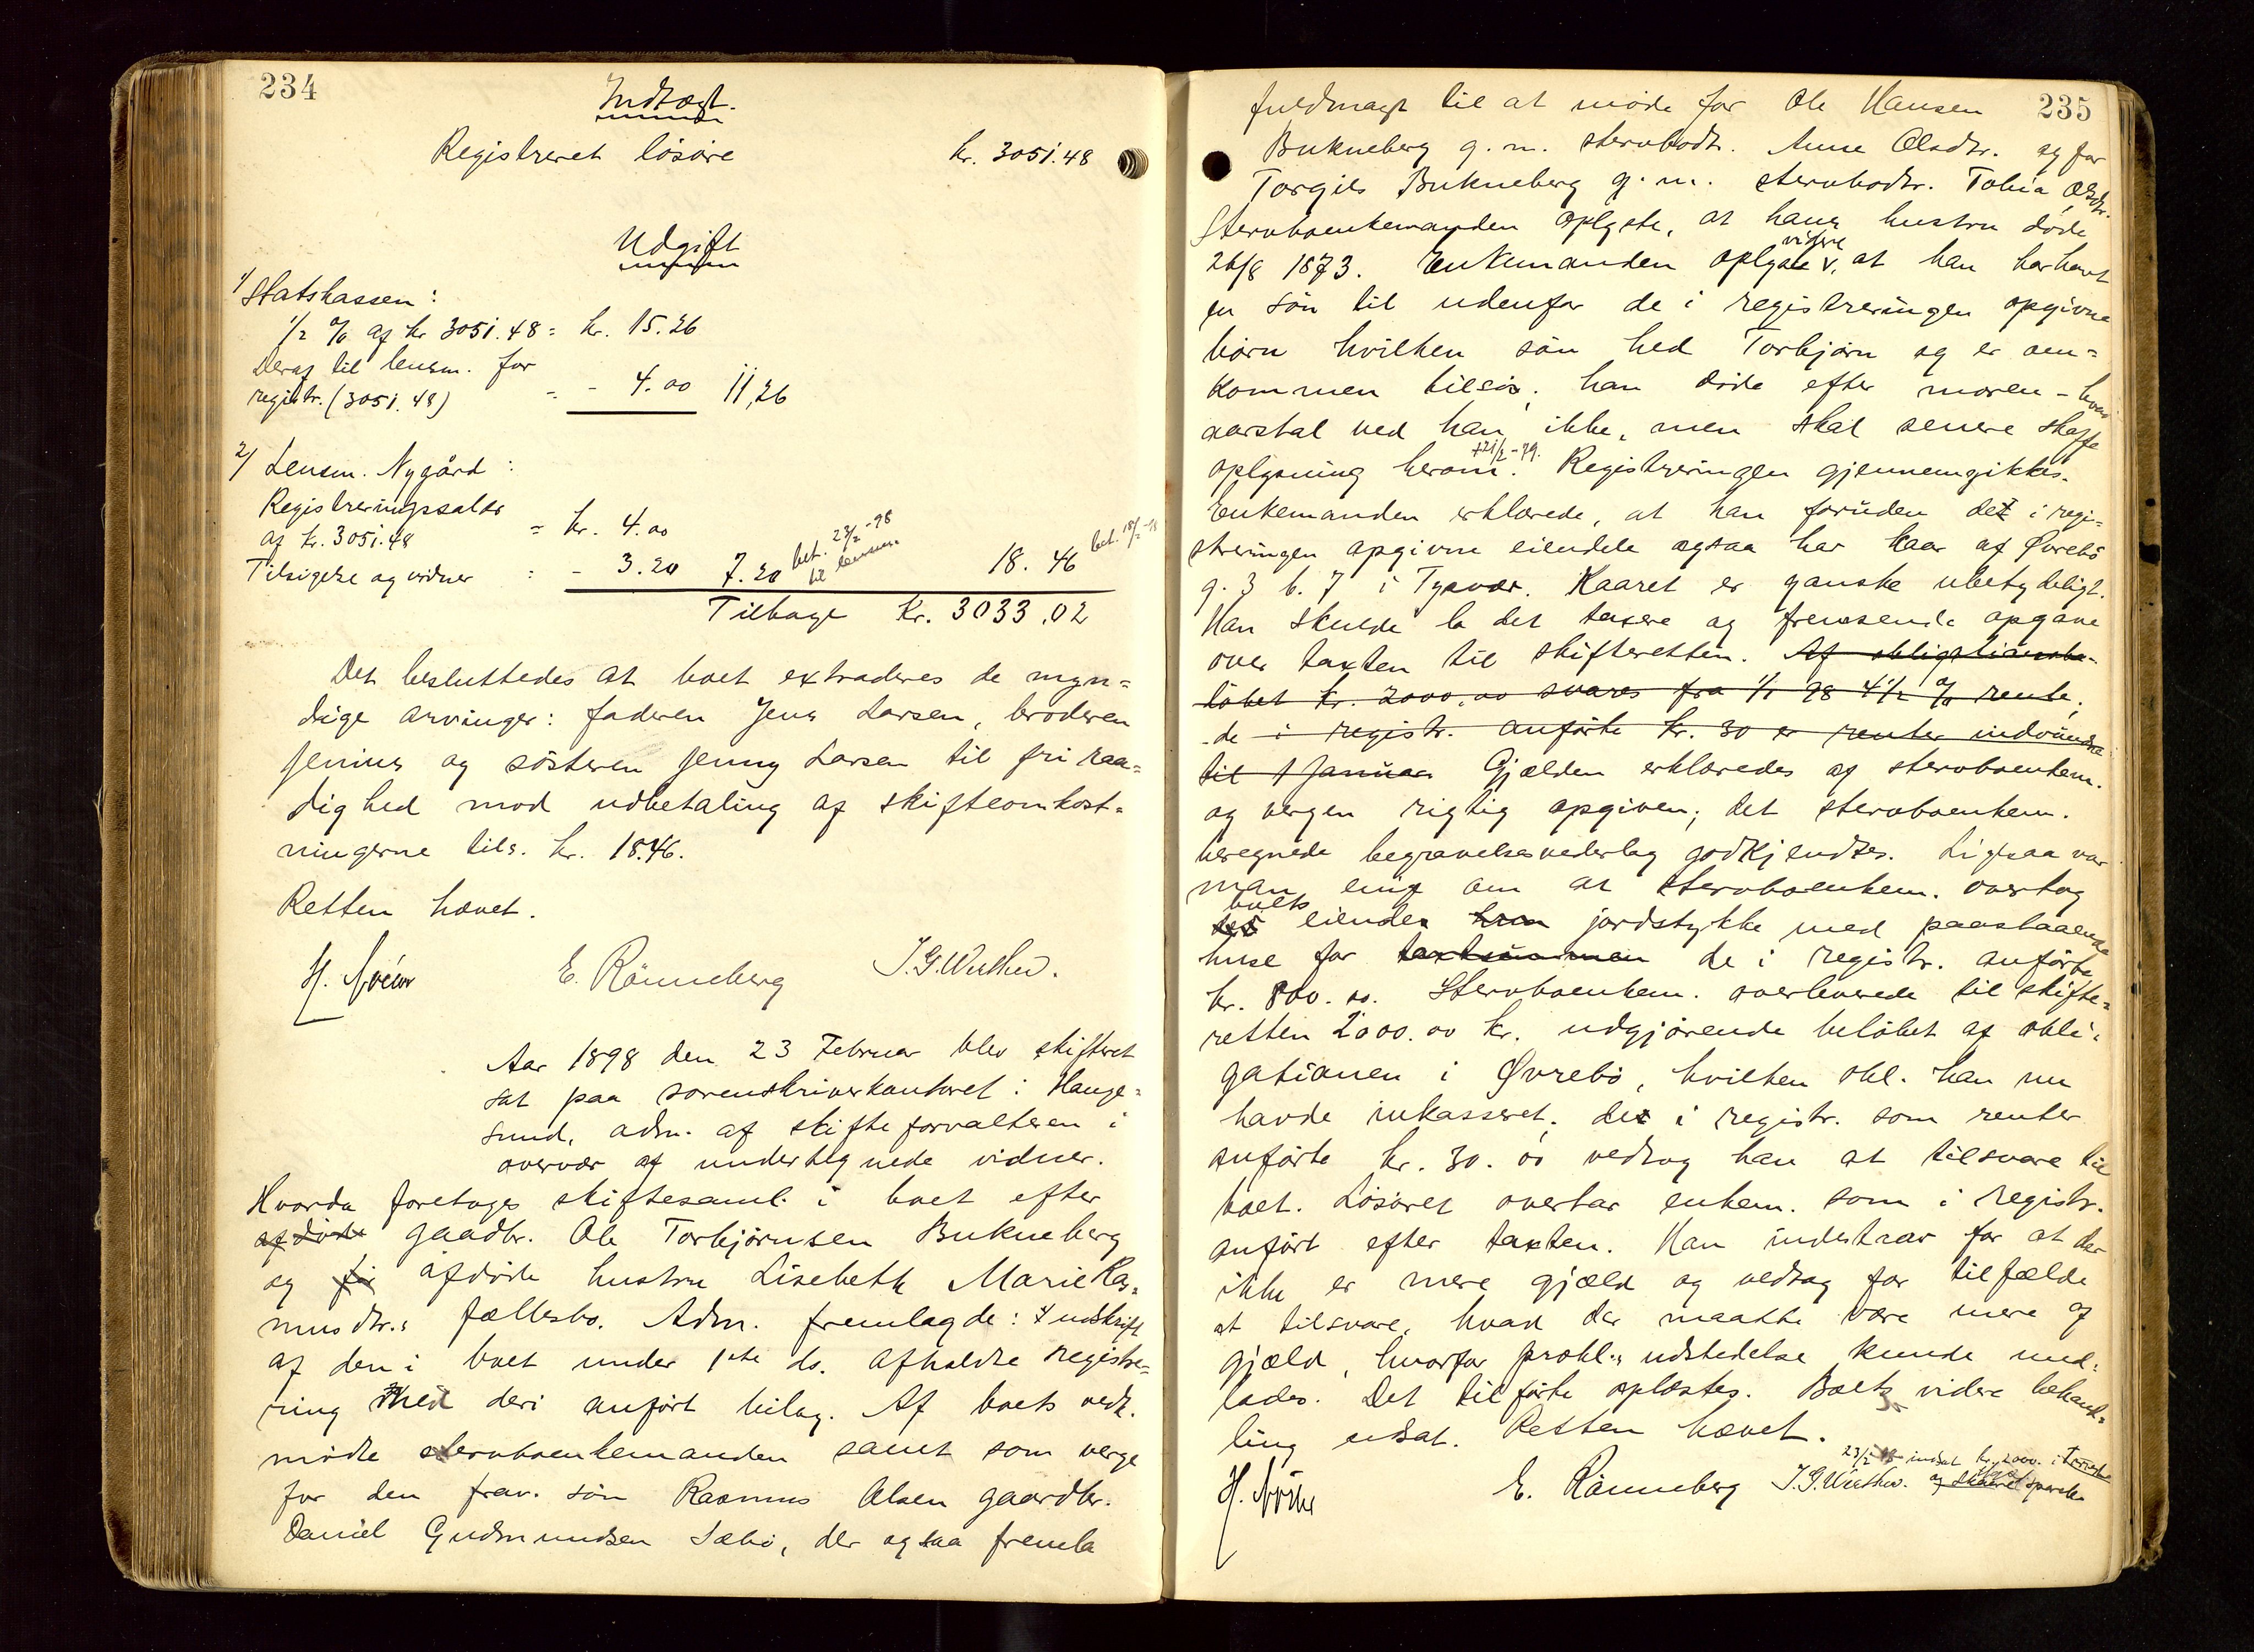 234
Indtægt.
Registreret løsøre kr. 3051.48
Udgift
1/ Statskassen:
1/2 % af kr 3051.48 = kr. 15.26
Deraf til lensm. for
registr. (3051.48) = - 4.00 11,26
2/ Lensm. Nygård:
Registreringssalær
af kr. 3051.48 = kr. 4.00
bet. 23/2-98
til lensm.
bet. 18/2-98
Tilsigelse og vidner = - 3.20 7.20 18.46
Tilbage Kr. 3033.02
Det besluttedes at boet extraderes de myn=
dige arvinger: faderen Jens Larsen, broderen
Jenius og søsteren Jenny Larsen til fri raa=
dighed mod udbetaling af skifteomkost=
ningerne tils. kr. 18.46.
Retten hævet.
E. Rønneberg J.G.Wuthw.
Aar 1898 den 23 Februar blev skifteret
sat paa sorenskriverkontoret i Hauge=
sund, adm. af skifteforvalteren i
overvær af undertegnede vidner.
Hvorda foretoges skiftesaml. i boet efter
afdøde gaadbr. Ole Torbjørnsen Bukneberg
og for afdøde hustru Lisebeth Marie Ras=
musdtr.s fællesbo. Adm. fremlagde: Udskrift
af den i boet under 1ste ds. afholdte registre=
ring med deri anført bilag. Af boets vedk.
mødte stervboenkemanden samt som verge
for den frav. søn Rasmus Olsen gaardbr.
Daniel Gudmundsen Sæbø, der ogsaa fremla
235
fuldmagt til at møde for Ole Hansen
Bukneberg g.m. stervbodt. Anne Olsdtr. og for
Torgils Bukneberg g.m. stervbodtr. Tobia Olsdtr.
Stervboenkemanden oplyste, at hans hustru døde
26/8 1873. Enkemanden oplyste videre, at han har havt
en søn til udenfor de i registreringen opgivne
børn hvilken søn hed Torbjørn og er om=
kommen tilsjøs; han døde efter moren - hvad
aarstal ved han ikke, men skal senere skaffe
oplysning herom. +21/2-79. Registreringen gjennemgikkes.
Enkemanden erklærede, at han foruden det i regi=
streringen opgivne eiendele ogsaa har kaar af Øvrebø
g. 3 b. 7 i Tysvær. Kaaret er ganske ubetydeligt.
Han skulde la det taxere og fremsende opgave
over taxten til skifteretten. Af obligationsbe-
løbet kr. 2000.00 svares fra 1/1 98 4 1/2 % rente;
de i registr. anførte kr. 30 er renter indvundne
til 1 Januar Gjælden erklæredes af stervboenkem.
og vergen rigtig opgiven; det stervboenkem.
beregnede begravelsesvederlag godkjendtes. Ligesaa var
man enig om at stervboenkem. overtog
boets eiendes jordstykke med paastaaende
huse for taxtsummen de i registr. anførte
kr. 800.00. Stervboenkem. overleverede til skifte=
retten 2000.00 kr. udgjørende beløbet af obli=
gationen i Øvrebø, hvilken obl. han nu
havde inkasseret; det i registr. som renter
anførte kr. 30.00 vedtog han at tilsvare til
boet. Løsøret overtar enkem. som i registr.
anført efter taxten. Han indestaar for at der
ikke er mere gjæld og vedtog for tilfælde
at tilsvare, hvad der maatte være mere af
gjæld, hvorfor prokl.s udstedelse kunde und=
lades. Det tilførte oplæstes. Boets videre behand=
ling udsat. Retten hævet.
23/2 98 indsat kr. 2000. i
og Skaare spareb.
E. Rønneberg J.G.Wuthw.